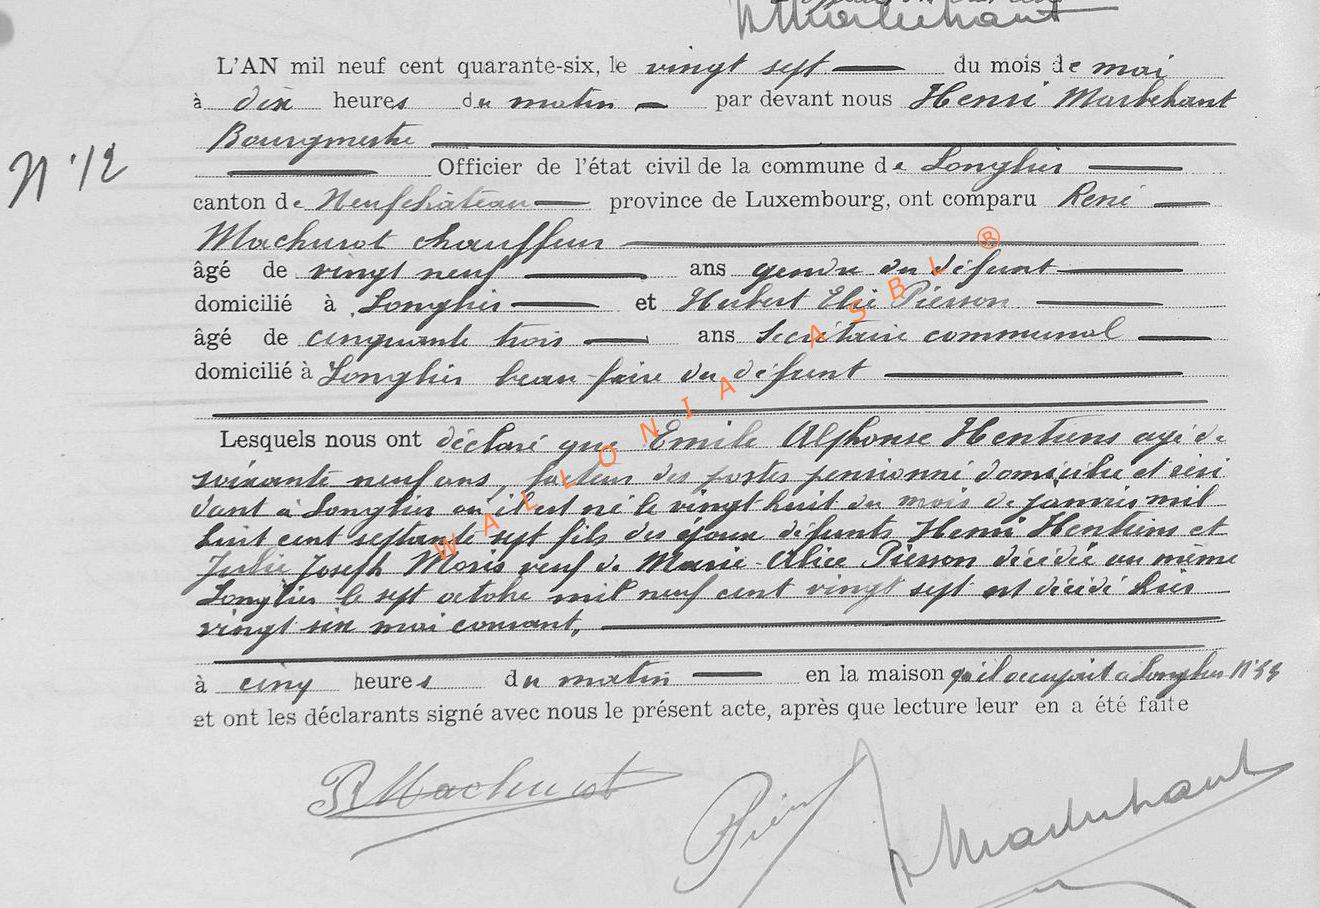 H Marbehant
L'AN mil neuf cent quarante-six, le vingt sept du mois de mai
à dix heures du matin par devant nous Henri Marbehant
Bourgmestre
N° 12
Officier de l'état civil de la commune de Longlier
canton de Neufchâteau province de Luxembourg, ont comparu René
Machurot chauffeur
âgé de vingt neuf ans gendre du défunt
domicilié à Longlier et Hubert Elie Pierson
âgé de cinquante trois ans Secrétaire communal
domicilié à Longlier beau-frère du défunt
Lesquels nous ont déclaré que Emile Alphonse Hentiens agé de
soixante neuf ans, facteur des postes pensionné domicilié et rési
dant à Longlier où il est né le vingt huit du mois de janvier mil
huit cent septante sept fils des époux défunts Henri Hentiens et
Julie Joseph Moris veuf de Marie-Alice Pierson décédée au même
Longlier le sept octobre mil neuf cent vingt sept est décédé hier
vingt six mai courant,
à cinq heures du matin en la maison qu'il occupait à Longlier N°
et ont les déclarants signé avec nous le présent acte, après que lecture leur en a été faite
R Machurot
Pierson
H Marbehant
WALLONIA ASBL ®